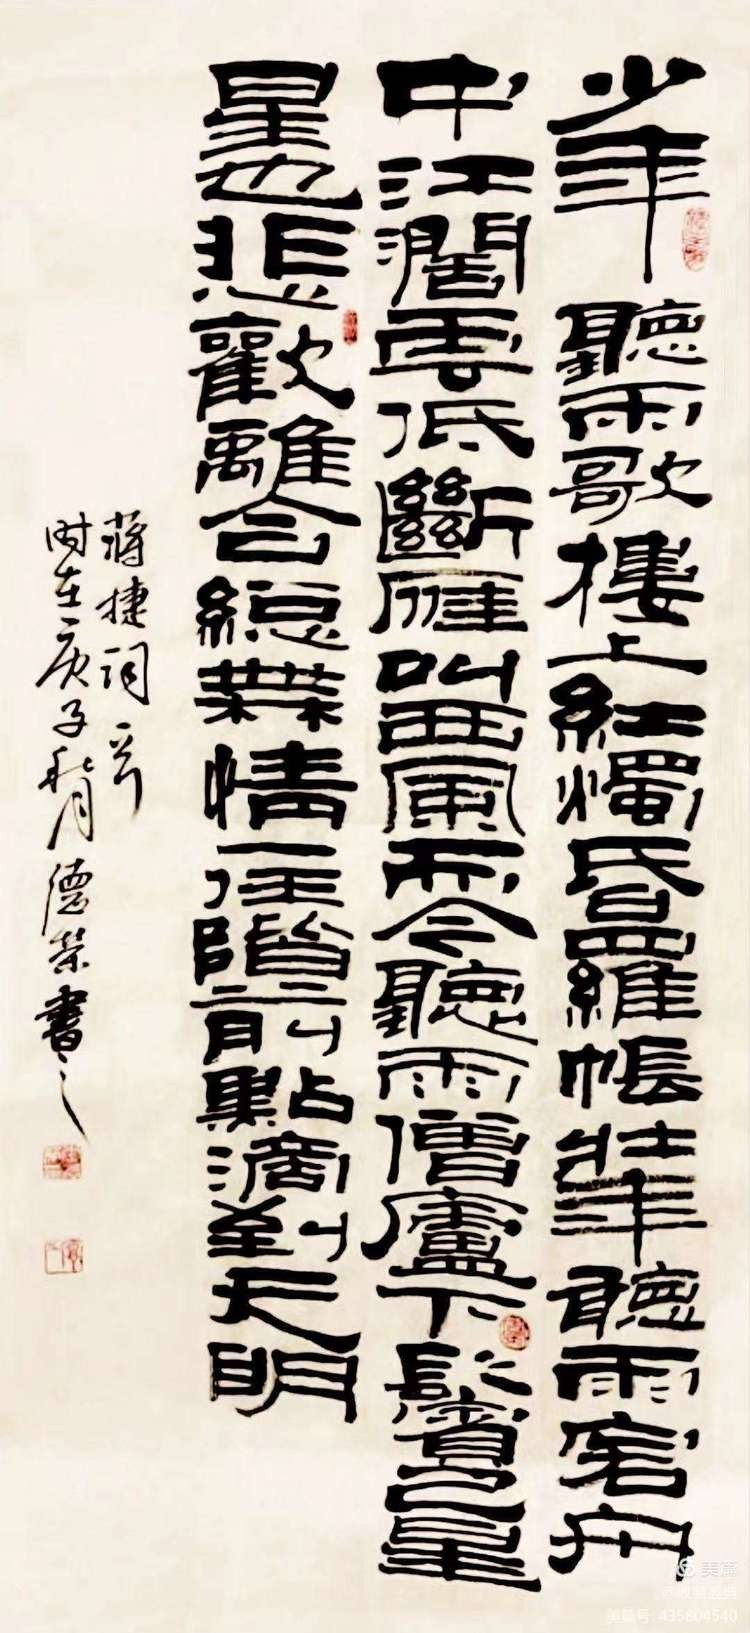 少年聽雨歌樓上紅燭昏羅帳壯年聽雨客舟
中江濶雲低斷雁叫西風而今聽雨僧廬下鬢已星
星也悲歡離合總無情一任階前點滴到天明
蔣捷詞一首
时在庚子秋月德荣書之
美篇
美篇号:435804540